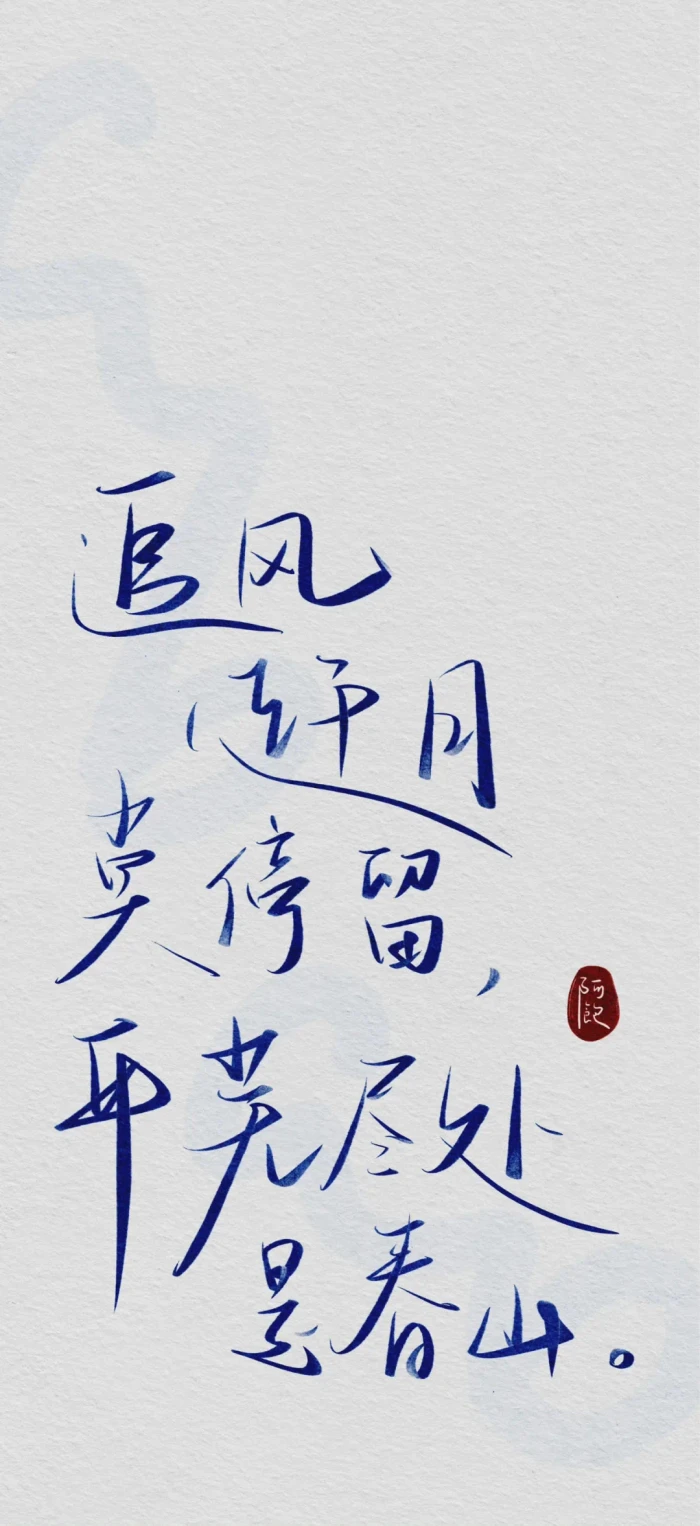 追风
赶月
莫停留，
平芜尽处
是春山。
阿饱